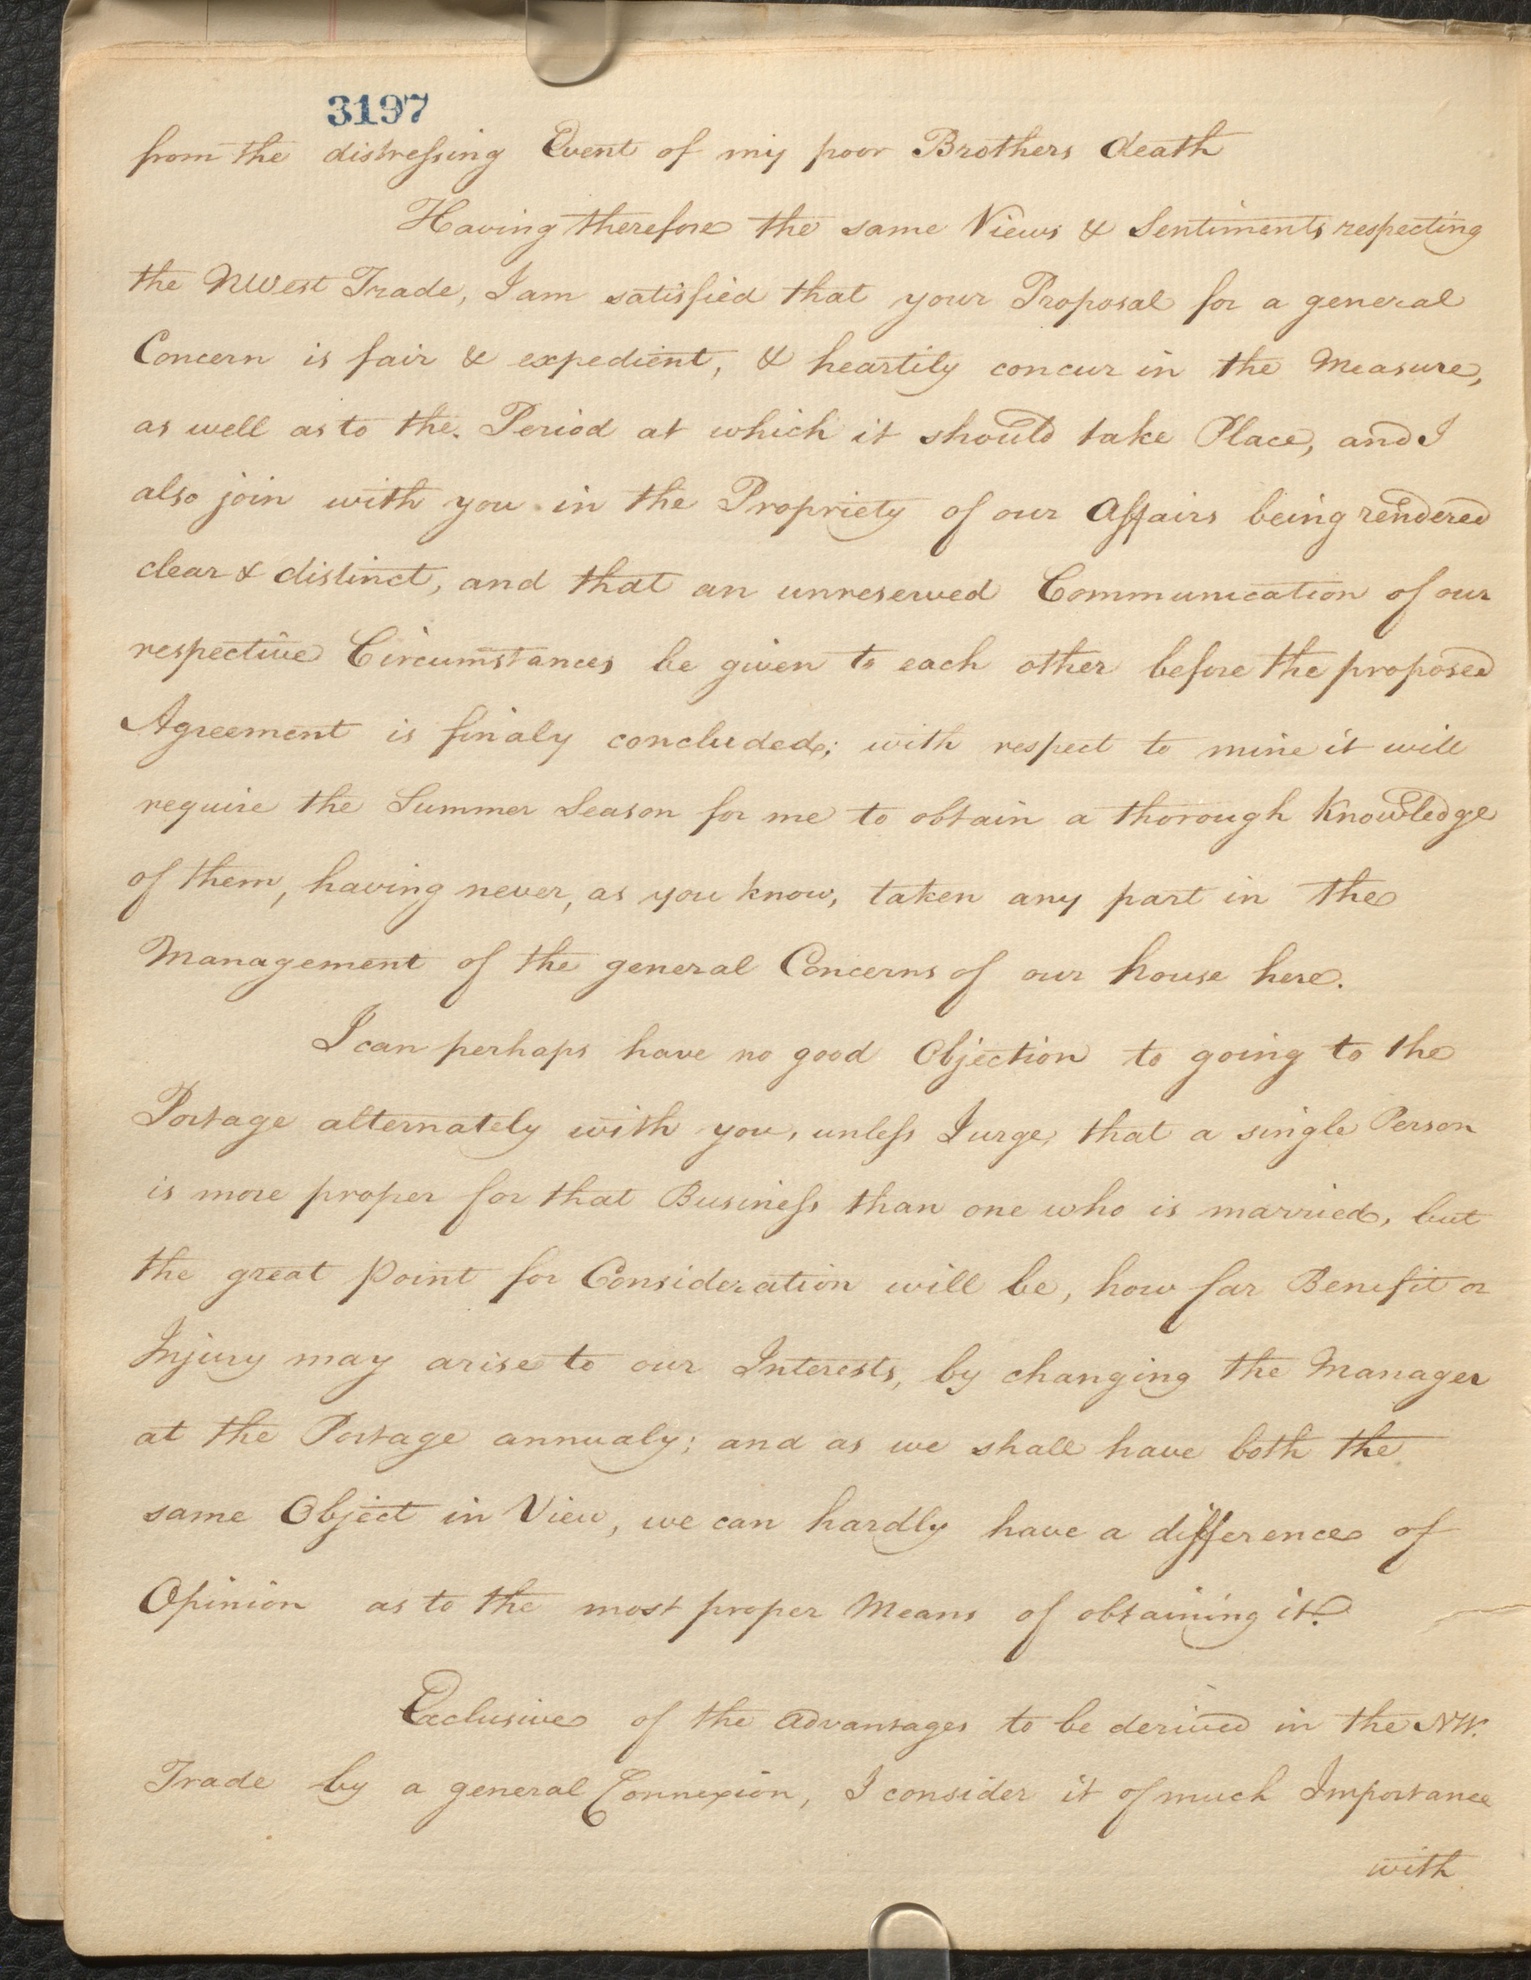 3197
from the distressing Event of my poor Brothers death
Having therefore the same Views & Sentiments respecting
the NWest Trade, I am satisfied that your Proposal for a general
Concern is fair & expedient, & heartily concur in the Measure,
as well as to the Period at which it should take Place, and I
also join with you in the Propriety of our Affairs being rendered
clear & distinct, and that an unreserved Communication of our
respective Circumstances be given to each other before the proposed
Agreement is finaly concluded; with respect to mine it will
require the Summer Season for me to obtain a thorough Knowledge
of them, having never, as you know, taken any part in the
Management of the general Concerns of our house here.
I can perhaps have no good Objection to going to the
Portage alternately with you, unless I urge, that a single Person
is more proper for that Business than one who is married, but
the great Point for Consideration will be, how far Benefit or
Injury may arise to our Interests, by changing the Manager
at the Portage annualy; and as we shall have both the
same Object in View, we can hardly have a difference of
Opinion as to the most proper Means of obtaining it.
Exclusive of the advantages to be derived in the NW.
Trade by a general Connexion, I consider it of much Importance
with